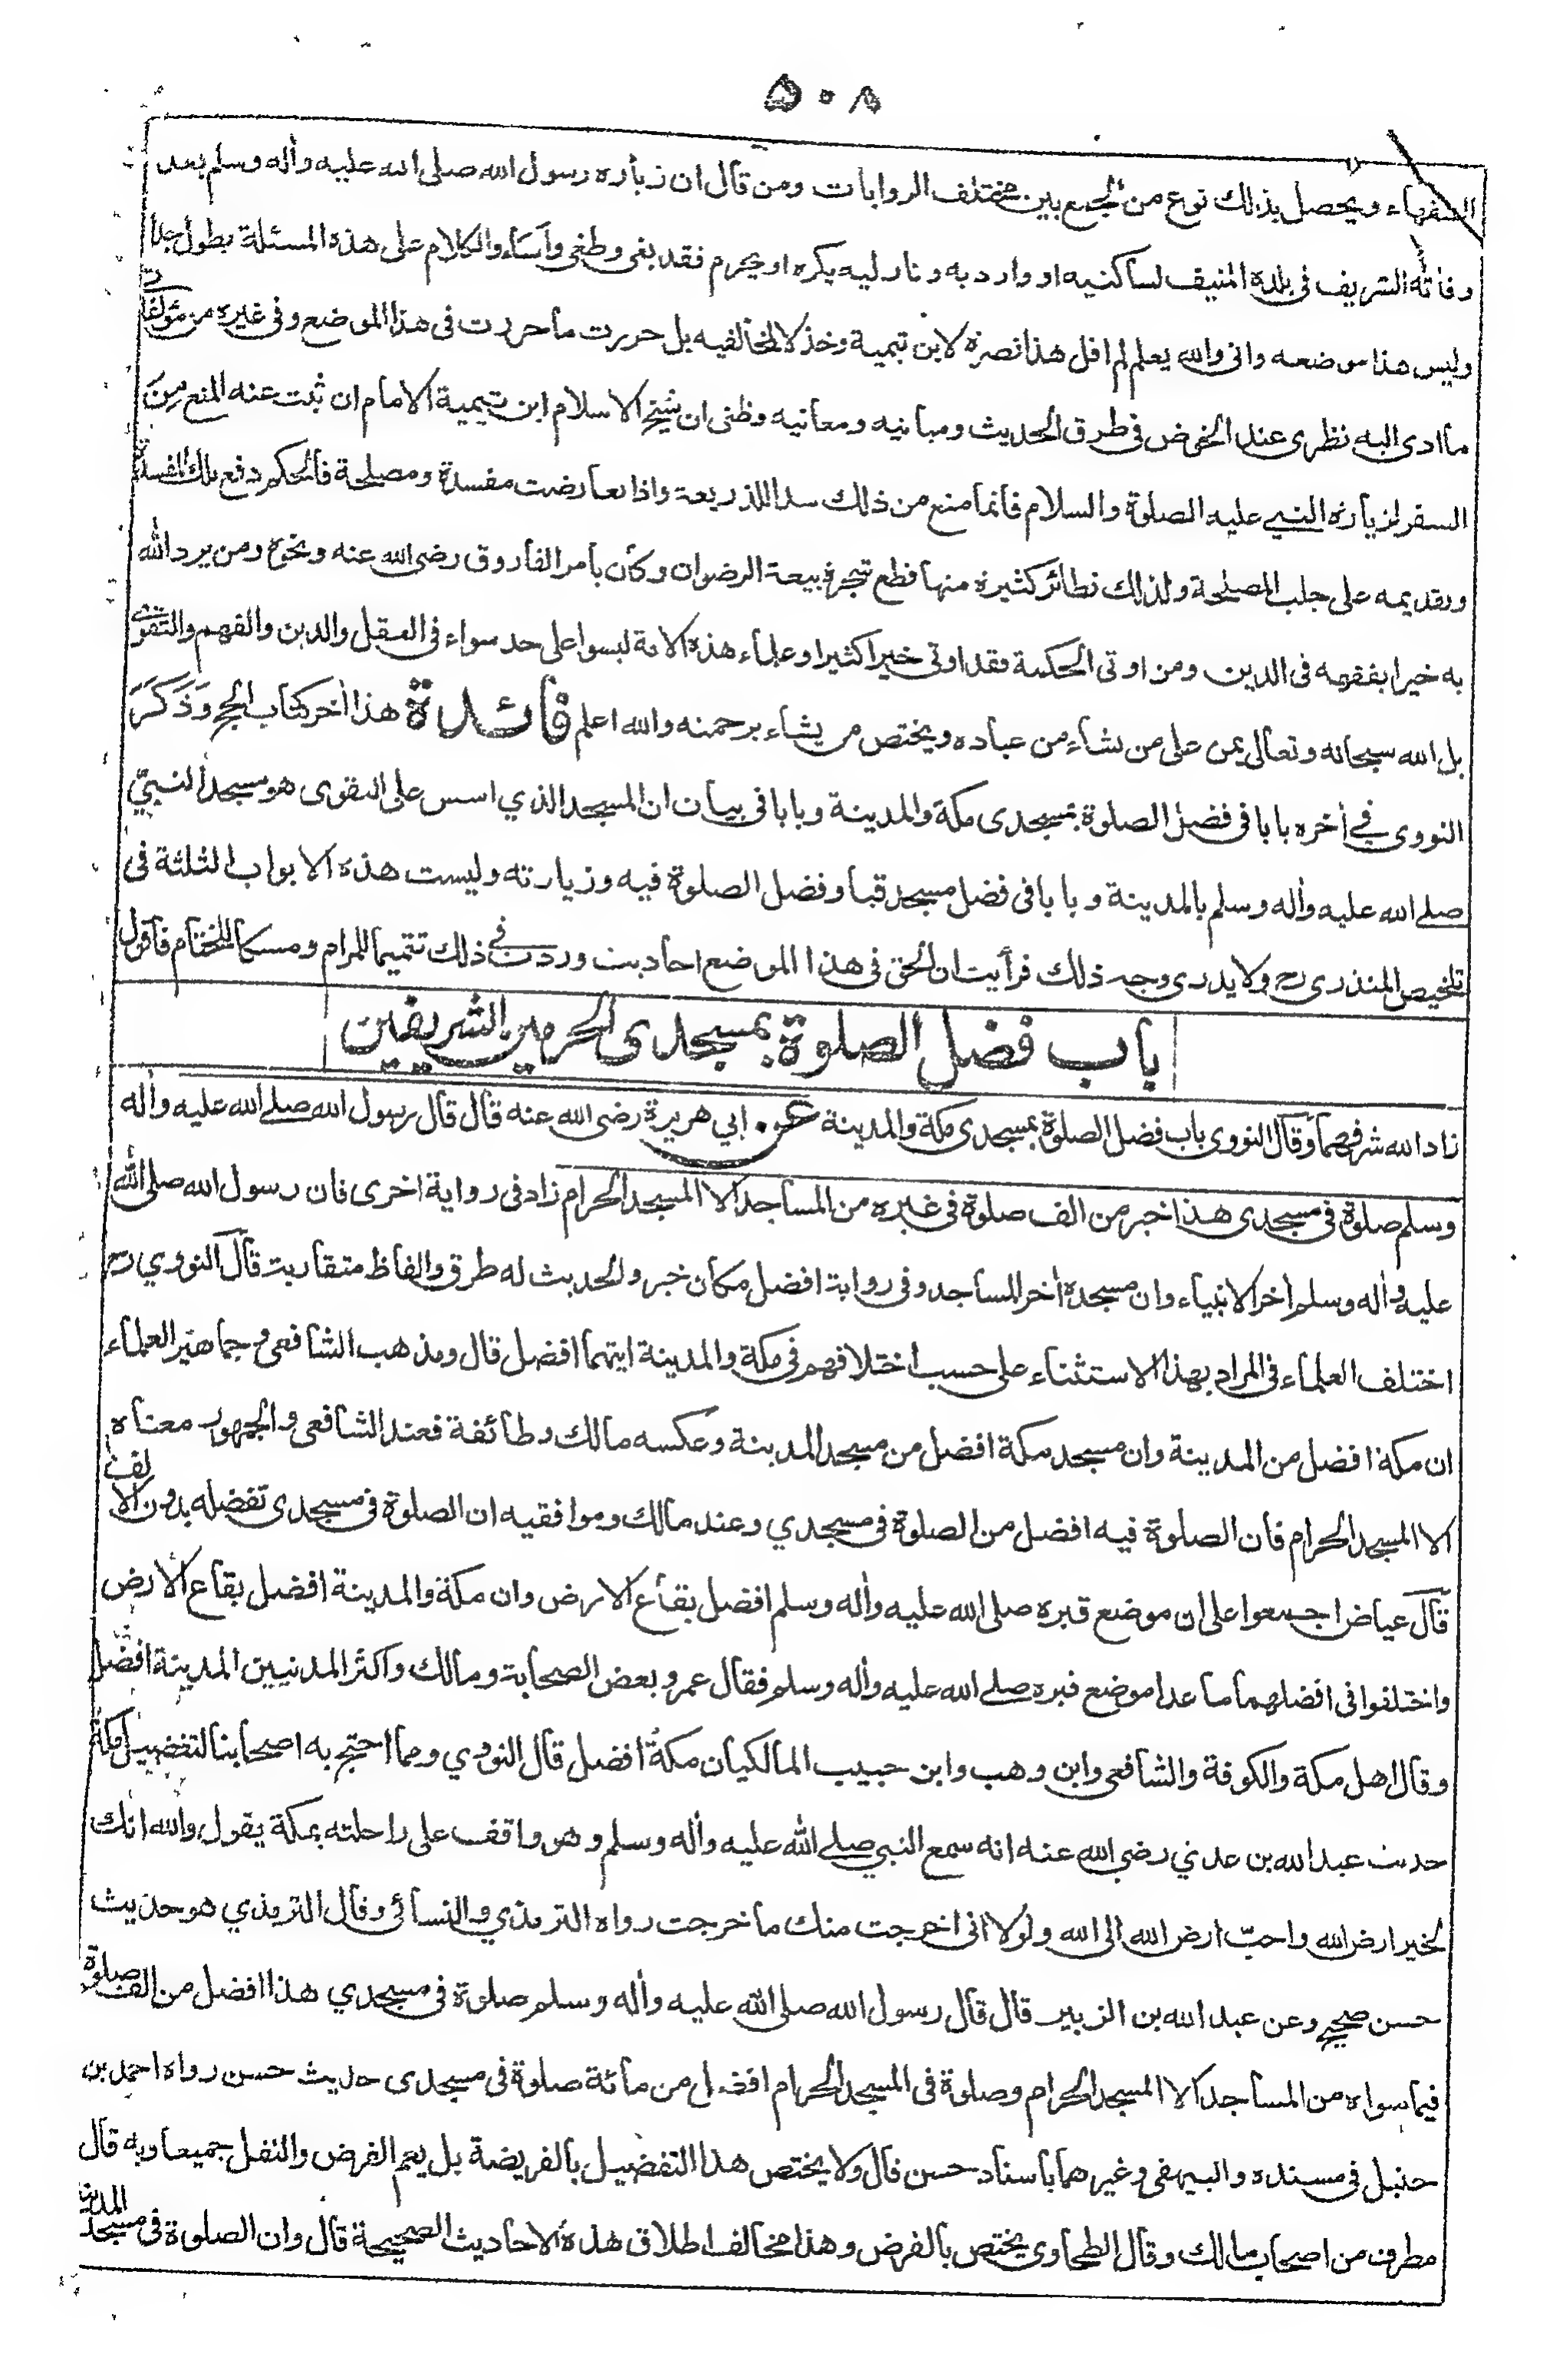 ۵۰۸
السفهاء ويحصل بذلك نوع من الجمع بين مختلف الروايات ومن قال ان زيارة رسول الله صلى الله عليه وأله وسلم بعد
وفاته الشريف فى بلده المنيف لساكنيه او وارد به ونازليه يكره او يحرم فقد بغى وطغى وأساء والكلام على هذه المسئلة يطول جدا
وليس هذا موضعه وانى والله يعلم لم اقل هذا نصرة لابن تيمية وخذلا لمخالفيه بل حررت ما حررت فى هذا الموضع وفى غيره من مؤلفاتى
ما ادى اليه نظرى عند الخوض فى طرق الحديث ومبانيه ومعانيه وظنى ان شيخ الاسلام ابن تيمية الامام ان ثبت عنه المنع مِنَ
السفر لزيارة النبي عليه الصلوة والسلام فانما منع من ذلك سدا للذريعة واذا تعارضت مفسدة ومصلحة فالحكم دفع تلك المفسدة
وتقديمه على جلب المصلحة ولذلك نظائر كثيرة منها قطع شجرة بيعة الرضوان وكان بامر الفاروق رضى الله عنه ونحوه ومن يرد الله
به خيرا يفقهه فى الدين ومن اوتى الحكمة فقد اوتى خيرا كثيرا وعلماء هذه الامة ليسوا على حد سواء فى العقل والدين والفهم والتقوى
بل الله سبحانه وتعالى يمن على من يشاء من عباده ويختص من يشاء برحمته والله اعلم فائدة هذا أخر كتاب الحج وَذَكَرَ
النووى في أخره بابا فى فضل الصلوة بمسجدى مكة والمدينة وبابا فى بيان ان المسجد الذي اسس على التقوى هو مسجد النبيّ
صلى الله عليه وأله وسلم بالمدينة وبابا فى فضل مسجد قبا وفضل الصلوة فيه وزيارته وليست هذه الابواب الثلثة فى
تلخيص المنذرى رح ولا يدرى وجه ذلك فرأيت ان الحق فى هذا الموضع احاديث وردت في ذلك تتميما للمرام ومسكا للختام فاقول
باب فضل الصلوة بمسجدى الحرمين الشريفين
زاد الله شرفهما وقال النووى باب فضل الصلوة بمسجدى مكة والمدينة عن ابي هريرة رضى الله عنه قال قال رسول الله صلى الله عليه وأله
وسلم صلوة فى مسجدى هذا خير من الف صلوة فى غيره من المساجد الا المسجد الحرام زاد فى رواية اخرى فان رسول الله صلى الله
عليه وأله وسلم أخر الانبياء وان مسجده أخر المساجد وفى رواية افضل مكان خير والحديث له طرق والفاظ متقاربة قال النووي رح
اختلف العلماء فى المراد بهذا الاستثناء على حسب اختلافهم فى مكة والمدينة ايتهما افضل قال ومذهب الشافعى وجماهير العلماء
ان مكة افضل من المدينة وان مسجد مكة افضل من مسجد المدينة وعكسه مالك وطائفة فعند الشافعى والجمهور معناه
الا المسجد الحرام فان الصلوة فيه افضل من الصلوة فى مسجدي وعند مالك وموافقيه ان الصلوة فى مسجدى تفضله بدون الالف
قال عياض اجمعوا على ان موضع قبره صلى الله عليه وأله وسلم افضل بقاع الارض وان مكة والمدينة افضل بقاع الارض
واختلفوا فى افضلهما ما عدا موضع قبره صلى الله عليه وأله وسلم فقال عمر وبعض الصحابة ومالك واكثر المدنيين المدينة افضل
وقال اهل مكة والكوفة والشافعى وابن وهب وابن حبيب المالكيان مكة افضل قال النووي ومما احتج به اصحابنا لتفضيل مكة
حديث عبد الله بن عدي رضى الله عنه انه سمع النبي صلى الله عليه وأله وسلم وهو واقف على راحلته بمكة يقول والله انك
لخير ارض الله واحبّ ارض الله الى الله ولولا انى اخرجت منك ما خرجت رواه الترمذي والنسائى وقال الترمذي هو حديث
حسن صحيح وعن عبد الله بن الزبير قال قال رسول الله صلى الله عليه وأله وسلم صلوة فى مسجدي هذا افضل من الف صلوة
فيما سواه من المساجد الا المسجد الحرام وصلوة فى المسجد الحرام افضل من مائة صلوة فى مسجدى حديث حسن رواه احمد بن
حنبل فى مسنده والبيهقى وغيرهما باسناد حسن قال ولا يختص هذا التفضيل بالفريضة بل يعم الفرض والنفل جميعا وبه قال
مطرف من اصحاب مالك وقال الطحاوى يختص بالفرض وهذا مخالف اطلاق هذه الاحاديث الصحيحة قال وان الصلوة فى مسجد المدينة